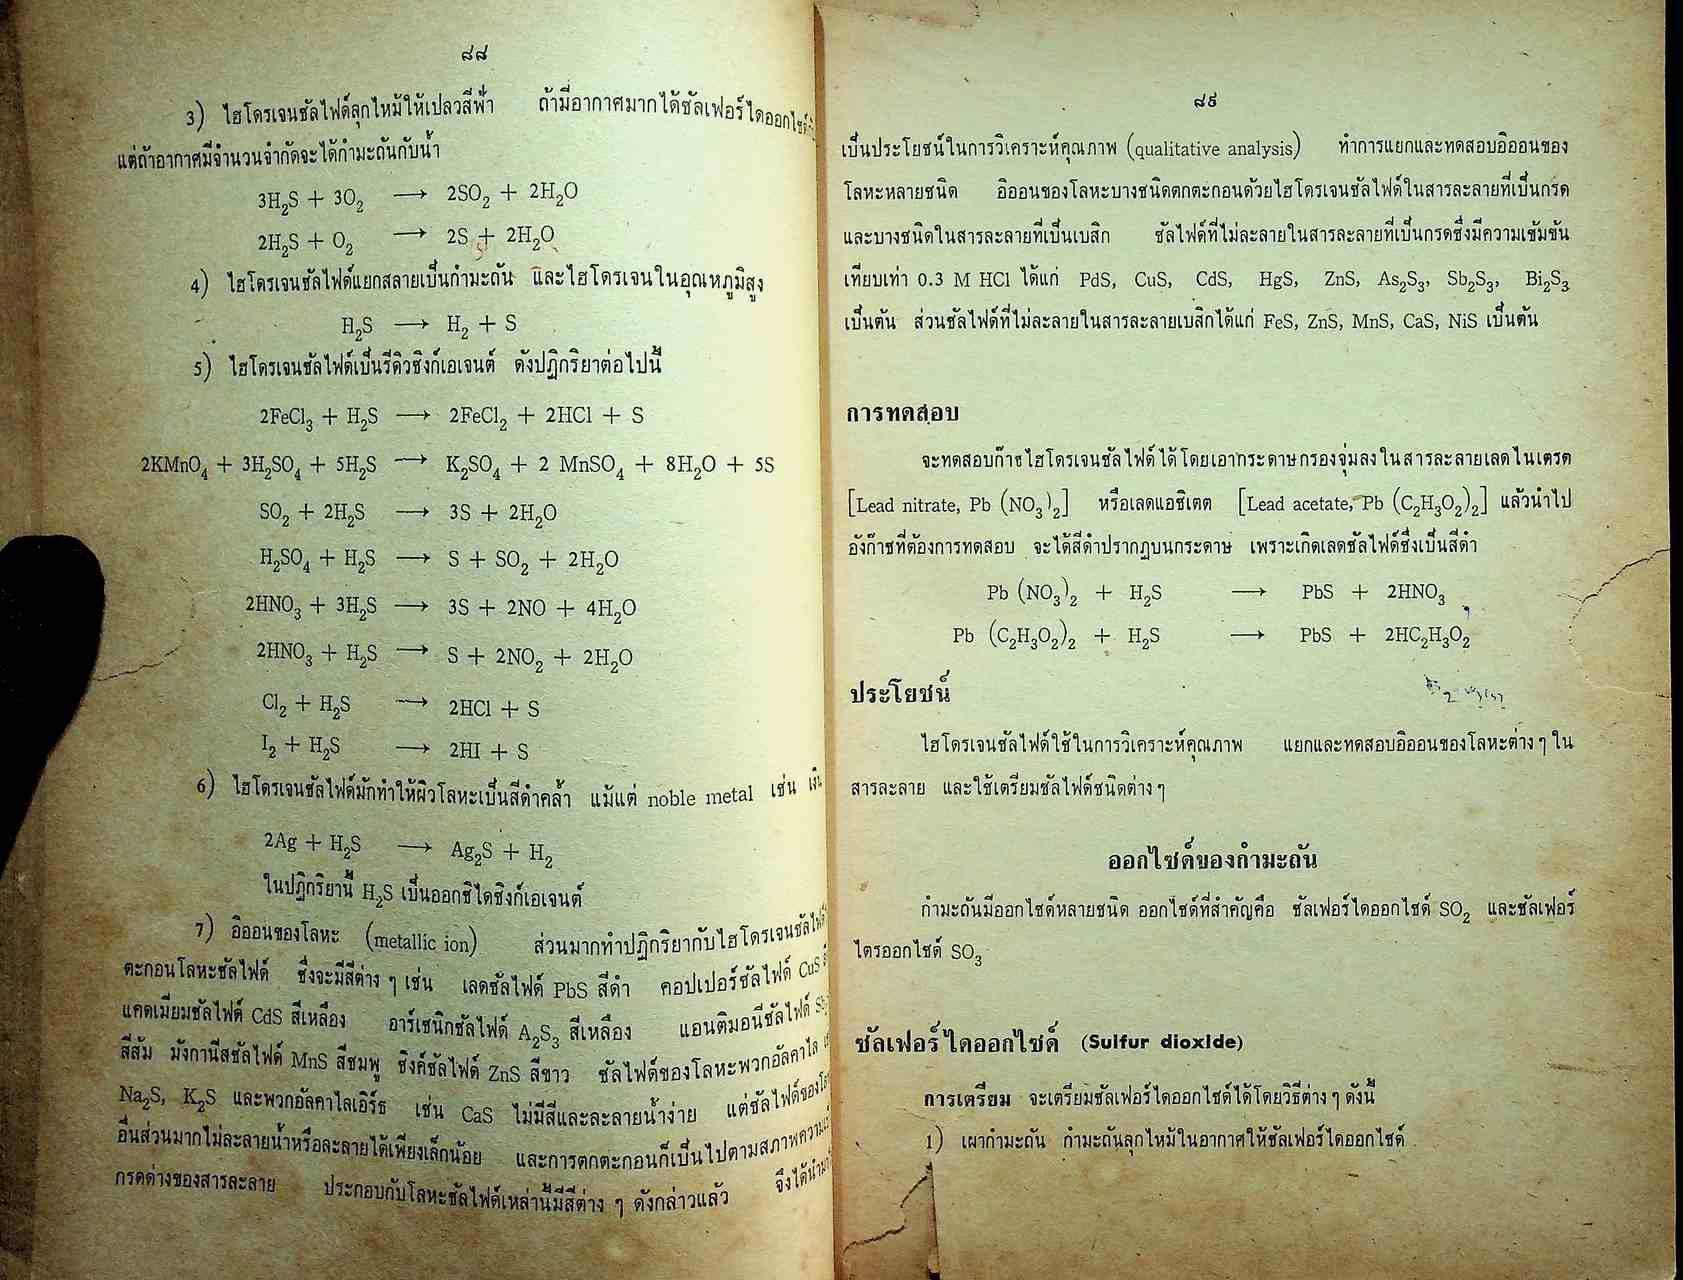 ๘๘
3) ไฮโดรเจนซัลไฟด์ลุกไหม้ให้เปลวสีฟ้า ถ้ามีอากาศมากได้ซัลเฟอร์ไดออกไซด์
แต่ถ้าอากาศมีจำนวนจำกัดจะได้กำมะถันกับน้ำ
3H₂S + 3O₂ ⟶ 2SO₂ + 2H₂O
2H₂S + O₂ ⟶ 2S + 2H₂O
4) ไฮโดรเจนซัลไฟด์แยกสลายเป็นกำมะถัน และไฮโดรเจนในอุณหภูมิสูง
H₂S ⟶ H₂ + S
5) ไฮโดรเจนซัลไฟด์เป็นรีดิวซิงก์เอเจนต์ ดังปฏิกริยาต่อไปนี้
2FeCl₃ + H₂S ⟶ 2FeCl₂ + 2HCl + S
2KMnO₄ + 3H₂SO₄ + 5H₂S ⟶ K₂SO₄ + 2 MnSO₄ + 8H₂O + 5S
SO₂ + 2H₂S ⟶ 3S + 2H₂O
H₂SO₄ + H₂S ⟶ S + SO₂ + 2H₂O
2HNO₃ + 3H₂S ⟶ 3S + 2NO + 4H₂O
2HNO₃ + H₂S ⟶ S + 2NO₂ + 2H₂O
Cl₂ + H₂S ⟶ 2HCl + S
I₂ + H₂S ⟶ 2HI + S
6) ไฮโดรเจนซัลไฟด์มักทำให้ผิวโลหะเป็นสีดำคล้ำ แม้แต่ noble metal เช่น เงิน
2Ag + H₂S ⟶ Ag₂S + H₂
ในปฏิกริยานี้ H₂S เป็นออกซิไดซิงก์เอเจนต์
7) อิออนของโลหะ (metallic ion) ส่วนมากทำปฏิกริยากับไฮโดรเจนซัลไฟด์
ตะกอนโลหะซัลไฟด์ ซึ่งจะมีสีต่าง ๆ เช่น เลดซัลไฟด์ PbS สีดำ คอปเปอร์ซัลไฟด์ CuS
แคดเมี่ยมซัลไฟด์ CdS สีเหลือง อาร์เซนิกซัลไฟด์ A₂S₃ สีเหลือง แอนติมอนีซัลไฟด์
สีส้ม มังกานีสซัลไฟด์ MnS สีชมพู ซิงค์ซัลไฟด์ ZnS สีขาว ซัลไฟด์ของโลหะพวกอัลคาไล
Na₂S, K₂S และพวกอัลคาไลเอิร์ธ เช่น CaS ไม่มีสีและละลายน้ำง่าย แต่ซัลไฟด์ของ
อื่นส่วนมากไม่ละลายน้ำหรือละลายได้เพียงเล็กน้อย และการตกตะกอนก็เป็นไปตามสภาพความ
กรดด่างของสารละลาย ประกอบกับโลหะซัลไฟด์เหล่านี้มีสีต่าง ๆ ดังกล่าวแล้ว จึงได้นำมา
๘๙
เป็นประโยชน์ในการวิเคราะห์คุณภาพ (qualitative analysis) ทำการแยกและทดสอบอิออนของ
โลหะหลายชนิด อิออนของโลหะบางชนิดตกตะกอนด้วยไฮโดรเจนซัลไฟด์ในสารละลายที่เป็นกรด
และบางชนิดในสารละลายที่เป็นเบสิก ซัลไฟด์ที่ไม่ละลายในสารละลายที่เป็นกรดซึ่งมีความเข้มข้น
เทียบเท่า 0.3 M HCl ได้แก่ PdS, CuS, CdS, HgS, ZnS, As₂S₃, Sb₂S₃, Bi₂S₃
เป็นต้น ส่วนซัลไฟด์ที่ไม่ละลายในสารละลายเบสิกได้แก่ FeS, ZnS, MnS, CaS, NiS เป็นต้น
การทดสอบ
จะทดสอบก๊าซไฮโดรเจนซัลไฟด์ได้โดยเอากระดาษกรองจุ่มลงในสารละลายเลดไนเตรต
[Lead nitrate, Pb (NO₃)₂] หรือเลดแอซิเตต [Lead acetate, Pb (C₂H₃O₂)₂] แล้วนำไป
อังก๊าซที่ต้องการทดสอบ จะได้สีดำปรากฏบนกระดาษ เพราะเกิดเลดซัลไฟด์ซึ่งเป็นสีดำ
Pb (NO₃)₂ + H₂S ⟶ PbS + 2HNO₃
Pb (C₂H₃O₂)₂ + H₂S ⟶ PbS + 2HC₂H₃O₂
ประโยชน์
ไฮโดรเจนซัลไฟด์ใช้ในการวิเคราะห์คุณภาพ แยกและทดสอบอิออนของโลหะต่างๆ ใน
สารละลาย และใช้เตรียมซัลไฟด์ชนิดต่างๆ
ออกไซด์ของกำมะถัน
กำมะถันมีออกไซด์หลายชนิด ออกไซด์ที่สำคัญคือ ซัลเฟอร์ไดออกไซด์ SO₂ และซัลเฟอร์
ไตรออกไซด์ SO₃
ซัลเฟอร์ไดออกไซด์ (Sulfur dioxide)
การเตรียม จะเตรียมซัลเฟอร์ไดออกไซด์ได้โดยวิธีต่างๆ ดังนี้
1) เผากำมะถัน กำมะถันลุกไหม้ในอากาศให้ซัลเฟอร์ไดออกไซด์